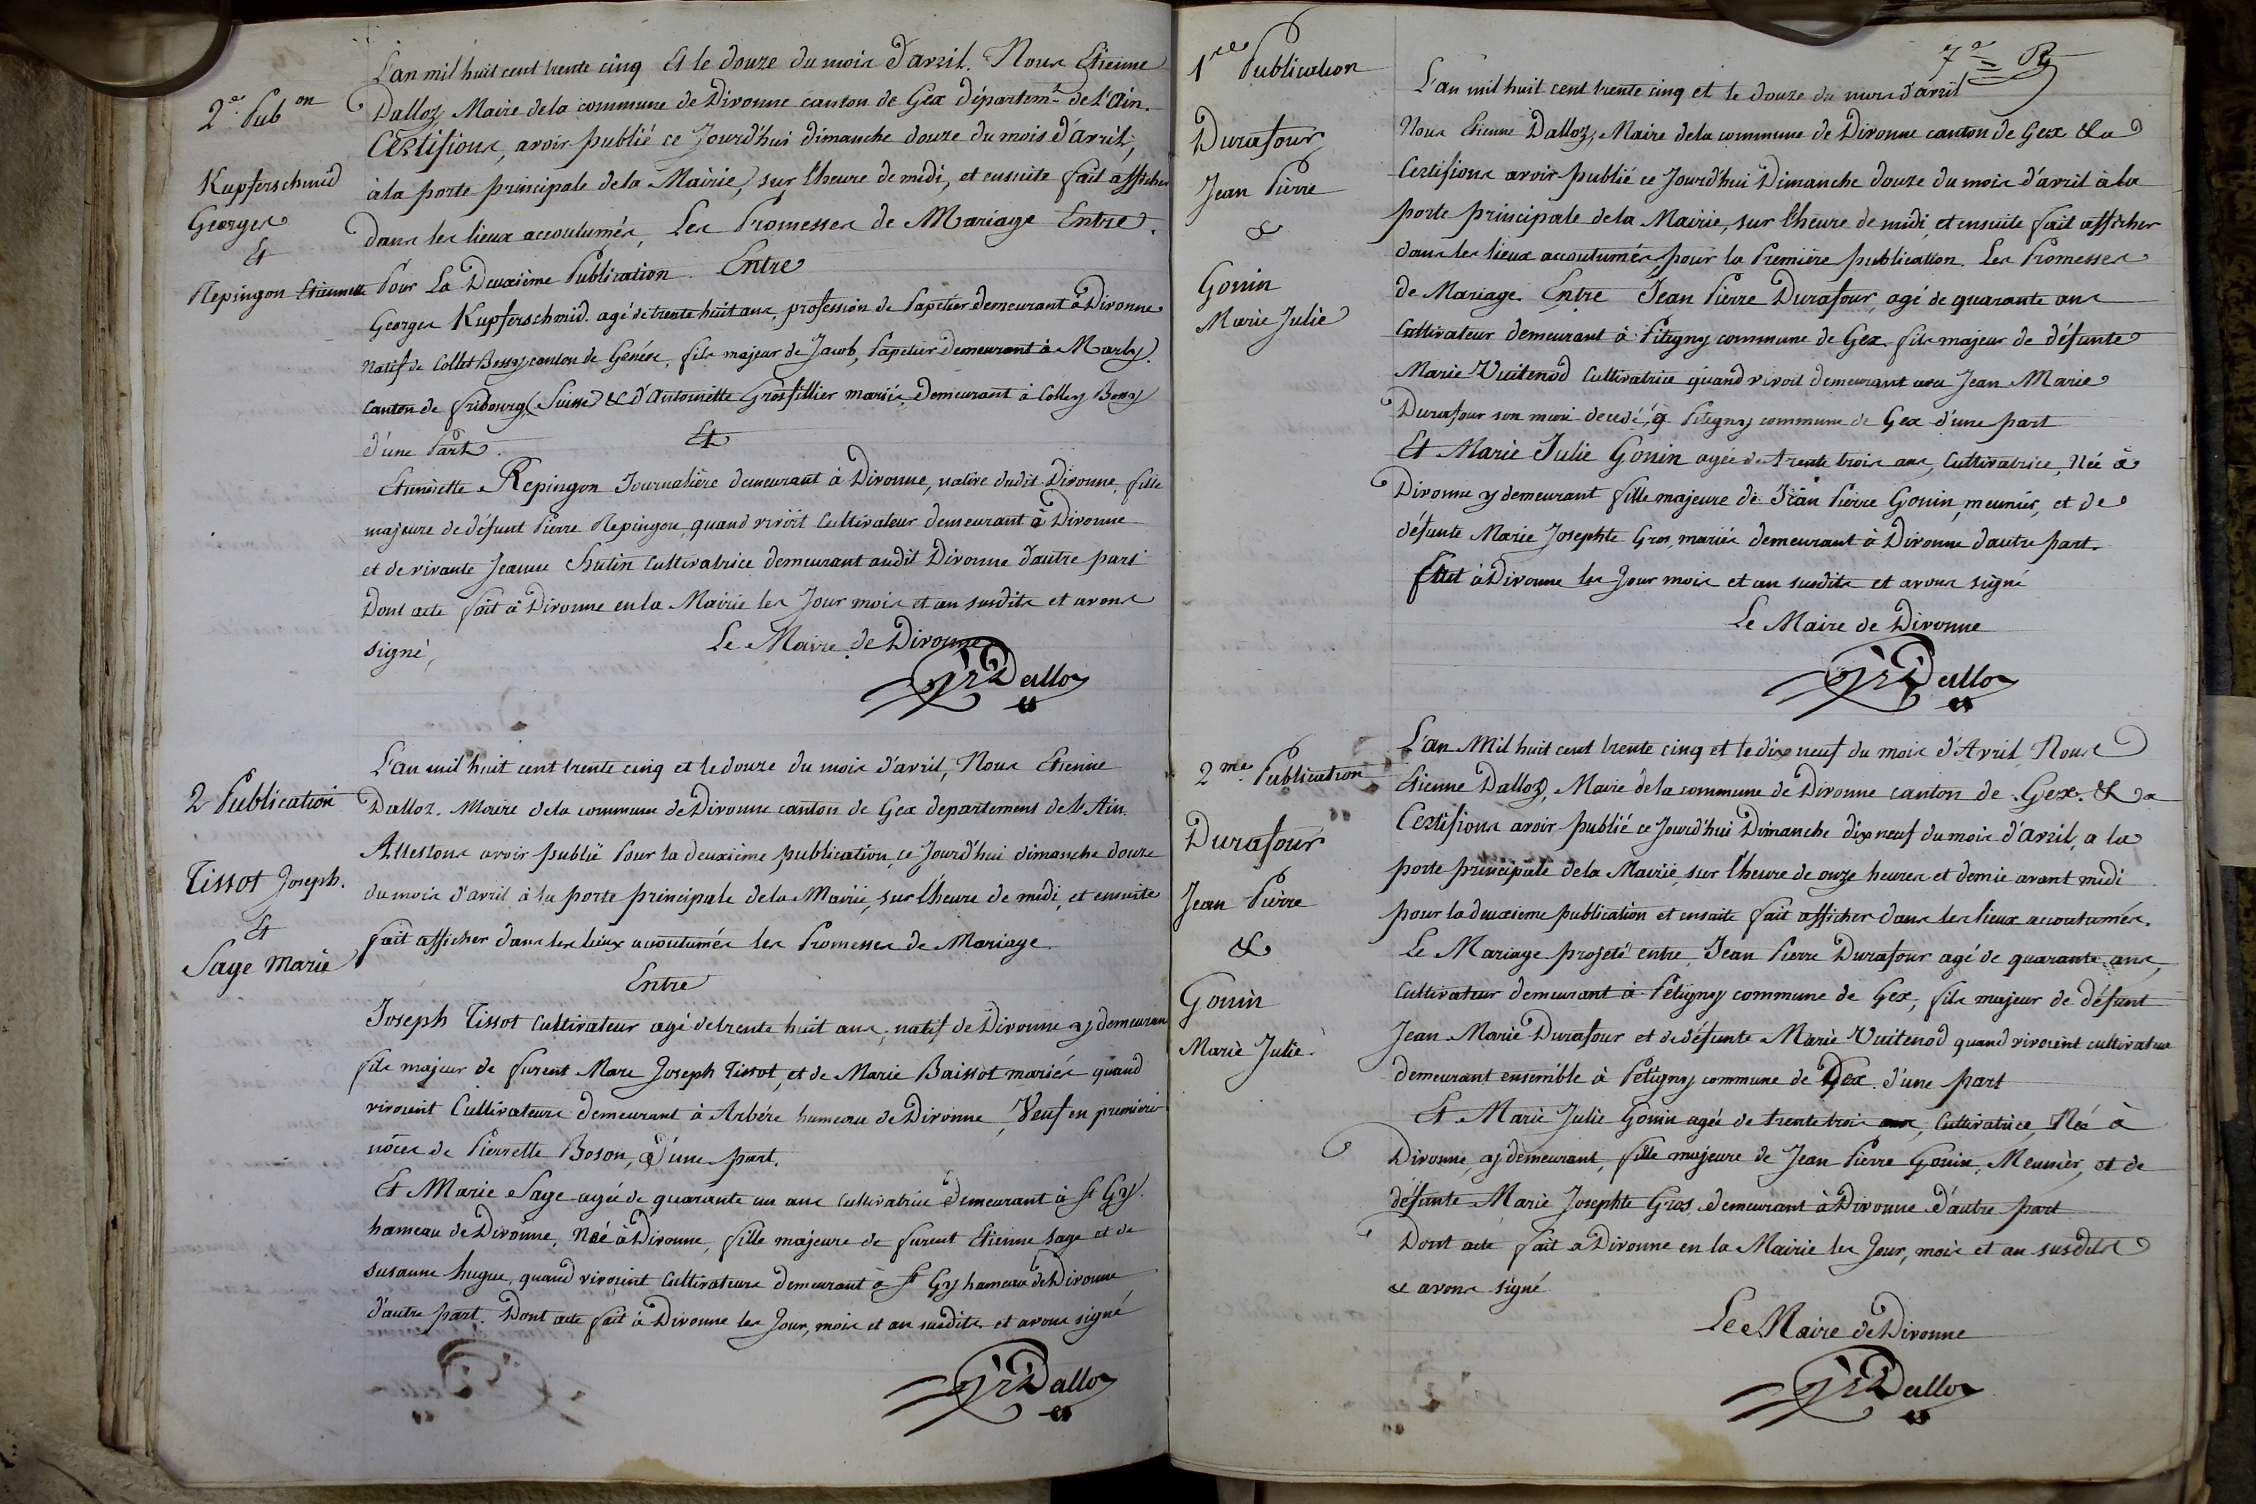 2e Pubon
Kupferschmid
Georges
Et
Repingon Etiennette
L'an mil huit cent trente cinq Et le douze du mois d'avril. Nous Etienne
Dalloz Maire de la commune de Divonne canton de Gex départemt de l'Ain.
Certifions, avoir publié ce Jourd'hui dimanche douze du mois d'avril,
à la porte principale de la Mairie, sur l'heure de midi, et ensuite fait afficher
dans les lieux accoutumés, Les Promesses de Mariage Entre.
Pour La Deuxième Publication. Entre
Georges Kupferschmid. agé de trente huit ans, profession de Papetier demeurant à Divonne
natif de Collet Bossy canton de Genève, fils majeur de Jacob, Papetier demeurant à Marly.
Canton de fribourg (Suisse) & d'Antoinette Grosfillier mariés, Demeurant à Colley Bossy
d'une Part. Et
Etiennette Repingon Journalière demeurant à Divonne, native dudit Divonne, fille
majeure de défunt Pierre Repingon, quand vivoit Cultivateur demeurant à Divonne
et de vivante Jeanne Chutin Cultivatrice demeurant audit Divonne d'autre part
Dont acte fait à Divonne en la Mairie les Jour mois et an susdits et avons
signé,
Le Maire de Divonne
Dalloz
2 Publication
Tissot Joseph.
Et
Sage Marie
L'an mil huit cent trente cinq et le douze du mois d'avril, Nous Etienne
Dalloz. Maire de la commune de Divonne canton de Gex departement de l'Ain.
Attestons avoir publié Pour la deuxième publication, ce Jourd'hui dimanche douze
du mois d'avril à la porte principale de la Mairie, sur l'heure de midi, et ensuite
fait afficher dans les lieux accoutumés les Promesses de Mariage
Entre
Joseph Tissot Cultivateur agé de trente huit ans, natif de Divonne y demeurant
fils majeur de furent Marc Joseph Tissot, et de Marie Baissot mariés quand
vivoient Cultivateurs demeurant à Arbère hameau de Divonne, Veuf en premiere
nôces de Pierrette Boson, d'une part.
Et Marie Sage agée de quarante un ans cultivatrice demeurant à St Gy.
hameau de Divonne, Née à Divonne, fille majeure de furent Etienne Sage et de
susanne hugue, quand vivoient Cultivateurs demeurant à St Gy hameau de Divonne
d'autre part. Dont acte fait à Divonne les Jour, mois et an susdits et avons signé
Dalloz
7e
1re Publication
Durafour
Jean Pierre
&
Gonin
Marie Julie
L'an mil huit cent trente cinq et le douze du mois d'avril
Nous Etienne Dalloz, Maire de la commune de Divonne canton de Gex &a
Certifions avoir publié ce Jourd'hui Dimanche douze du mois d'avril à la
porte principale de la Mairie, sur l'heure de midi, et ensuite fait afficher
dans les lieux accoutumés, pour la Première publication. Les Promesses
de Mariage. Entre Jean Pierre Durafour, agé de quarante ans
Cultivateur demeurant à Pitegny commune de Gex, fils majeur de défunte
Marie Vuitenod Cultivatrice quand vivoit demeurant avec Jean Marie
Durafour son mari decédé, à Pitegny commune de Gex d'une part
Et Marie Julie Gonin agée de trente trois ans, Cultivatrice, Née à
Divonne y demeurant fille majeure de Jean Pierre Gonin, meunier, et de
défunte Marie Josephte Gros, mariés demeurant à Divonne d'autre part.
fait à Divonne les Jour mois et an susdits et avons signé
Le Maire de Divonne
Dalloz
2me Publication
Durafour
Jean Pierre
&
Gonin
Marie Julie.
L'an Mil huit cent trente cinq et le dix neuf du mois d'Avril, Nous
Etienne Dalloz, Maire de la commune de Divonne canton de Gex. &a
Certifions avoir publié ce Jourd'hui Dimanche dix neuf du mois d'avril, a la
porte principale de la Mairie, sur l'heure de onze heures et demie avant midi
pour la deuxieme publication et ensuite fait afficher dans les lieux accoutumés.
Le Mariage projeté entre, Jean Pierre Durafour agé de quarante ans,
Cultivateur demeurant à Pétigny commune de Gex, fils majeur de défunt
Jean Marie Durafour et de défunte Marie Vuitenod quand vivoient cultivateurs
demeurant ensemble à Pétigny commune de Gex. d'une part
Et Marie Julie Gonin agée de trente trois ans, Cultivatrice, Née à
Divonne, y demeurant, fille majeure de Jean Pierre Gonin, Meunier, et de
défunte Marie Josephte Gros, demeurant à Divonne d'autre part
Dont acte fait a Divonne en la Mairie les Jour, mois et an susdits
et avons signé
Le Maire de Divonne
Dalloz